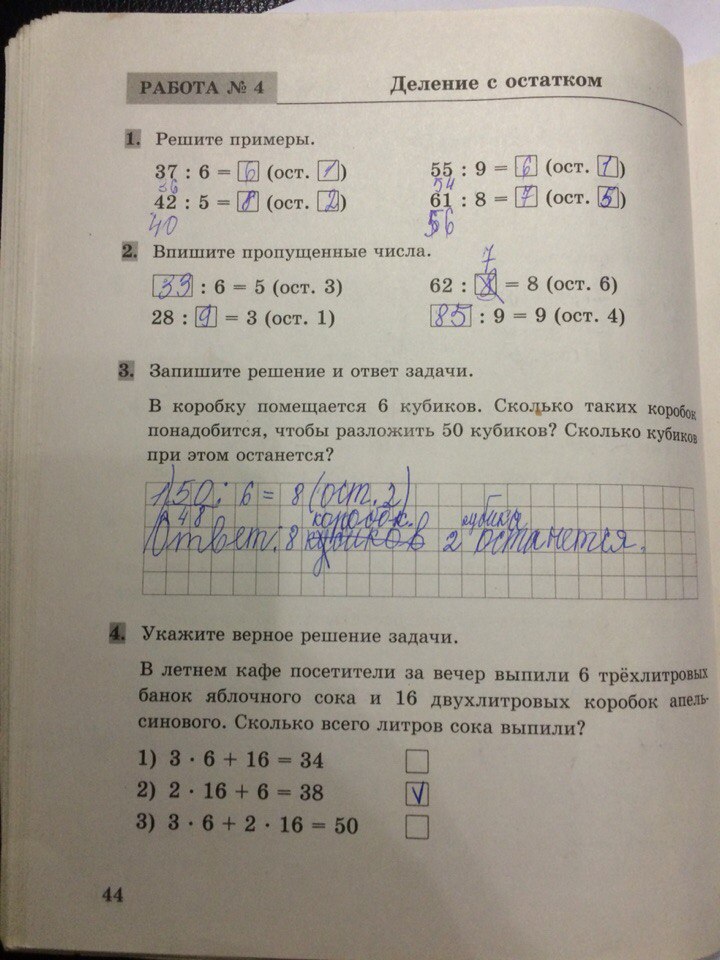 РАБОТА № 4 Деление с остатком
1. Решите примеры.
37 : 6 = 6 (ост. 1) 55 : 9 = 6 (ост. 1)
36 54
42 : 5 = 8 (ост. 2) 61 : 8 = 7 (ост. 5)
40 56
2. Впишите пропущенные числа.
7
33 : 6 = 5 (ост. 3) 62 : 8 = 8 (ост. 6)
28 : 9 = 3 (ост. 1) 85 : 9 = 9 (ост. 4)
3. Запишите решение и ответ задачи.
В коробку помещается 6 кубиков. Сколько таких коробок
понадобится, чтобы разложить 50 кубиков? Сколько кубиков
при этом останется?
1) 50 : 6 = 8 (ост. 2)
48 коробок. кубика
Ответ: 8 кубиков 2 останется.
4. Укажите верное решение задачи.
В летнем кафе посетители за вечер выпили 6 трёхлитровых
банок яблочного сока и 16 двухлитровых коробок апель-
синового. Сколько всего литров сока выпили?
1) 3 · 6 + 16 = 34
2) 2 · 16 + 6 = 38 V
3) 3 · 6 + 2 · 16 = 50
44